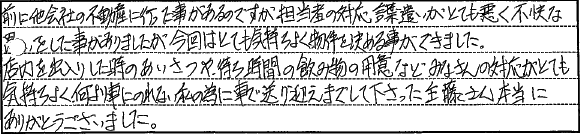 前に他会社の不動産に行った事があるのですが担当者の対応、言葉遣いがとても悪く不快な
思いをした事がありましたが今回はとても気持ちよく物件を決める事ができました。
店内を出入りした時のあいさつや、待ち時間の飲み物の用意などみなさんの対応がとても
気持ちよく何より車にのれない私の為に車で送り迎えまでして下さった工藤さん本当に
ありがとうございました。